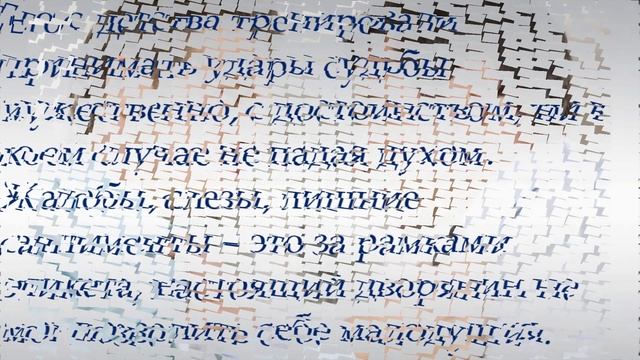 Тело с детства тренировали
принимать удары судьбы
мужественно, с достоинством, ни в
коем случае не падая духом.
Жалобы, слезы, лишние
сантименты – это за рамками
этикета, настоящий дворянин не
мог позволить себе малодушия.